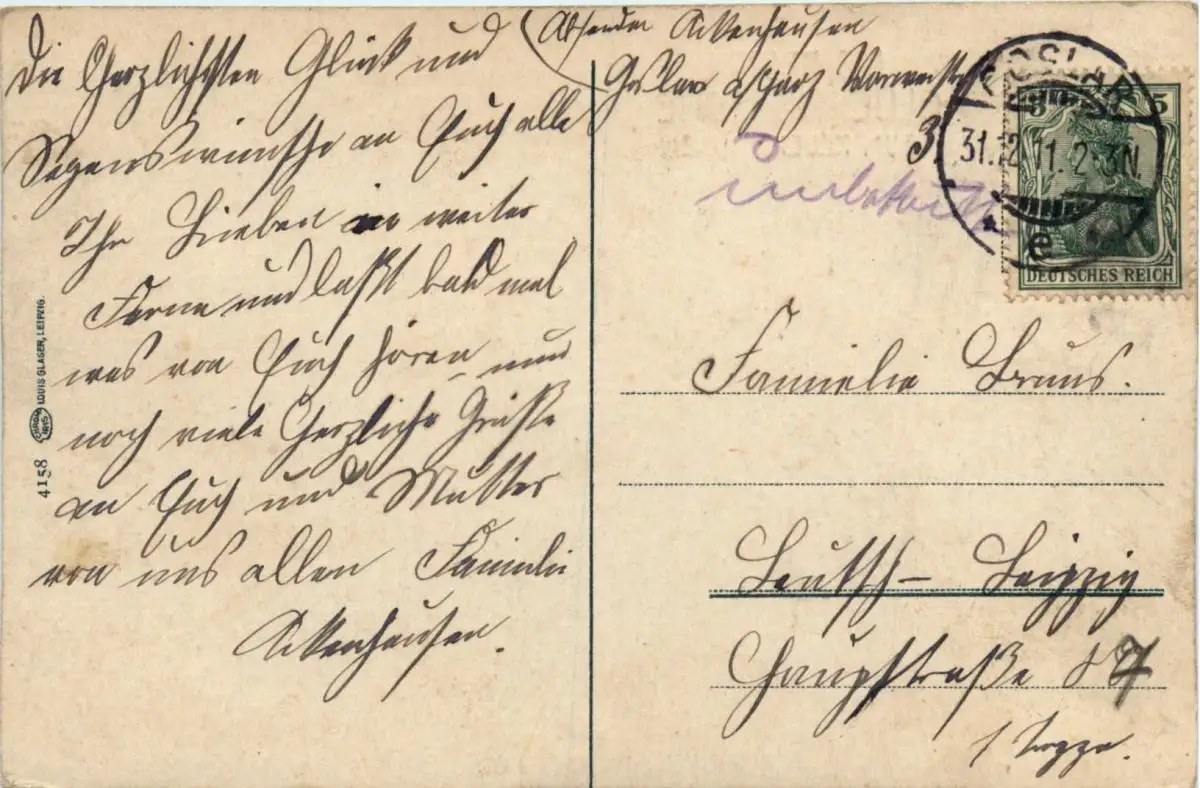 Die Herzlichsten Glück und
Segenswünsche an Euch alle
Ihr Lieben in weiter
Ferne und laßt bald mal
was von Euch hören und
noch viele Herzliche Grüße
an Euch und Mutter
von uns allen Familie
Ackenhausen.
Absender Ackenhausen
Goslar a/Harz
3.
GOSLAR
31.12.11.2-3N.
e
5
DEUTSCHES REICH
Familie Bruns.
Leutsch-Leipzig
Hauptstraße
1 Treppe.
4158
LOUIS GLASER, LEIPZIG.